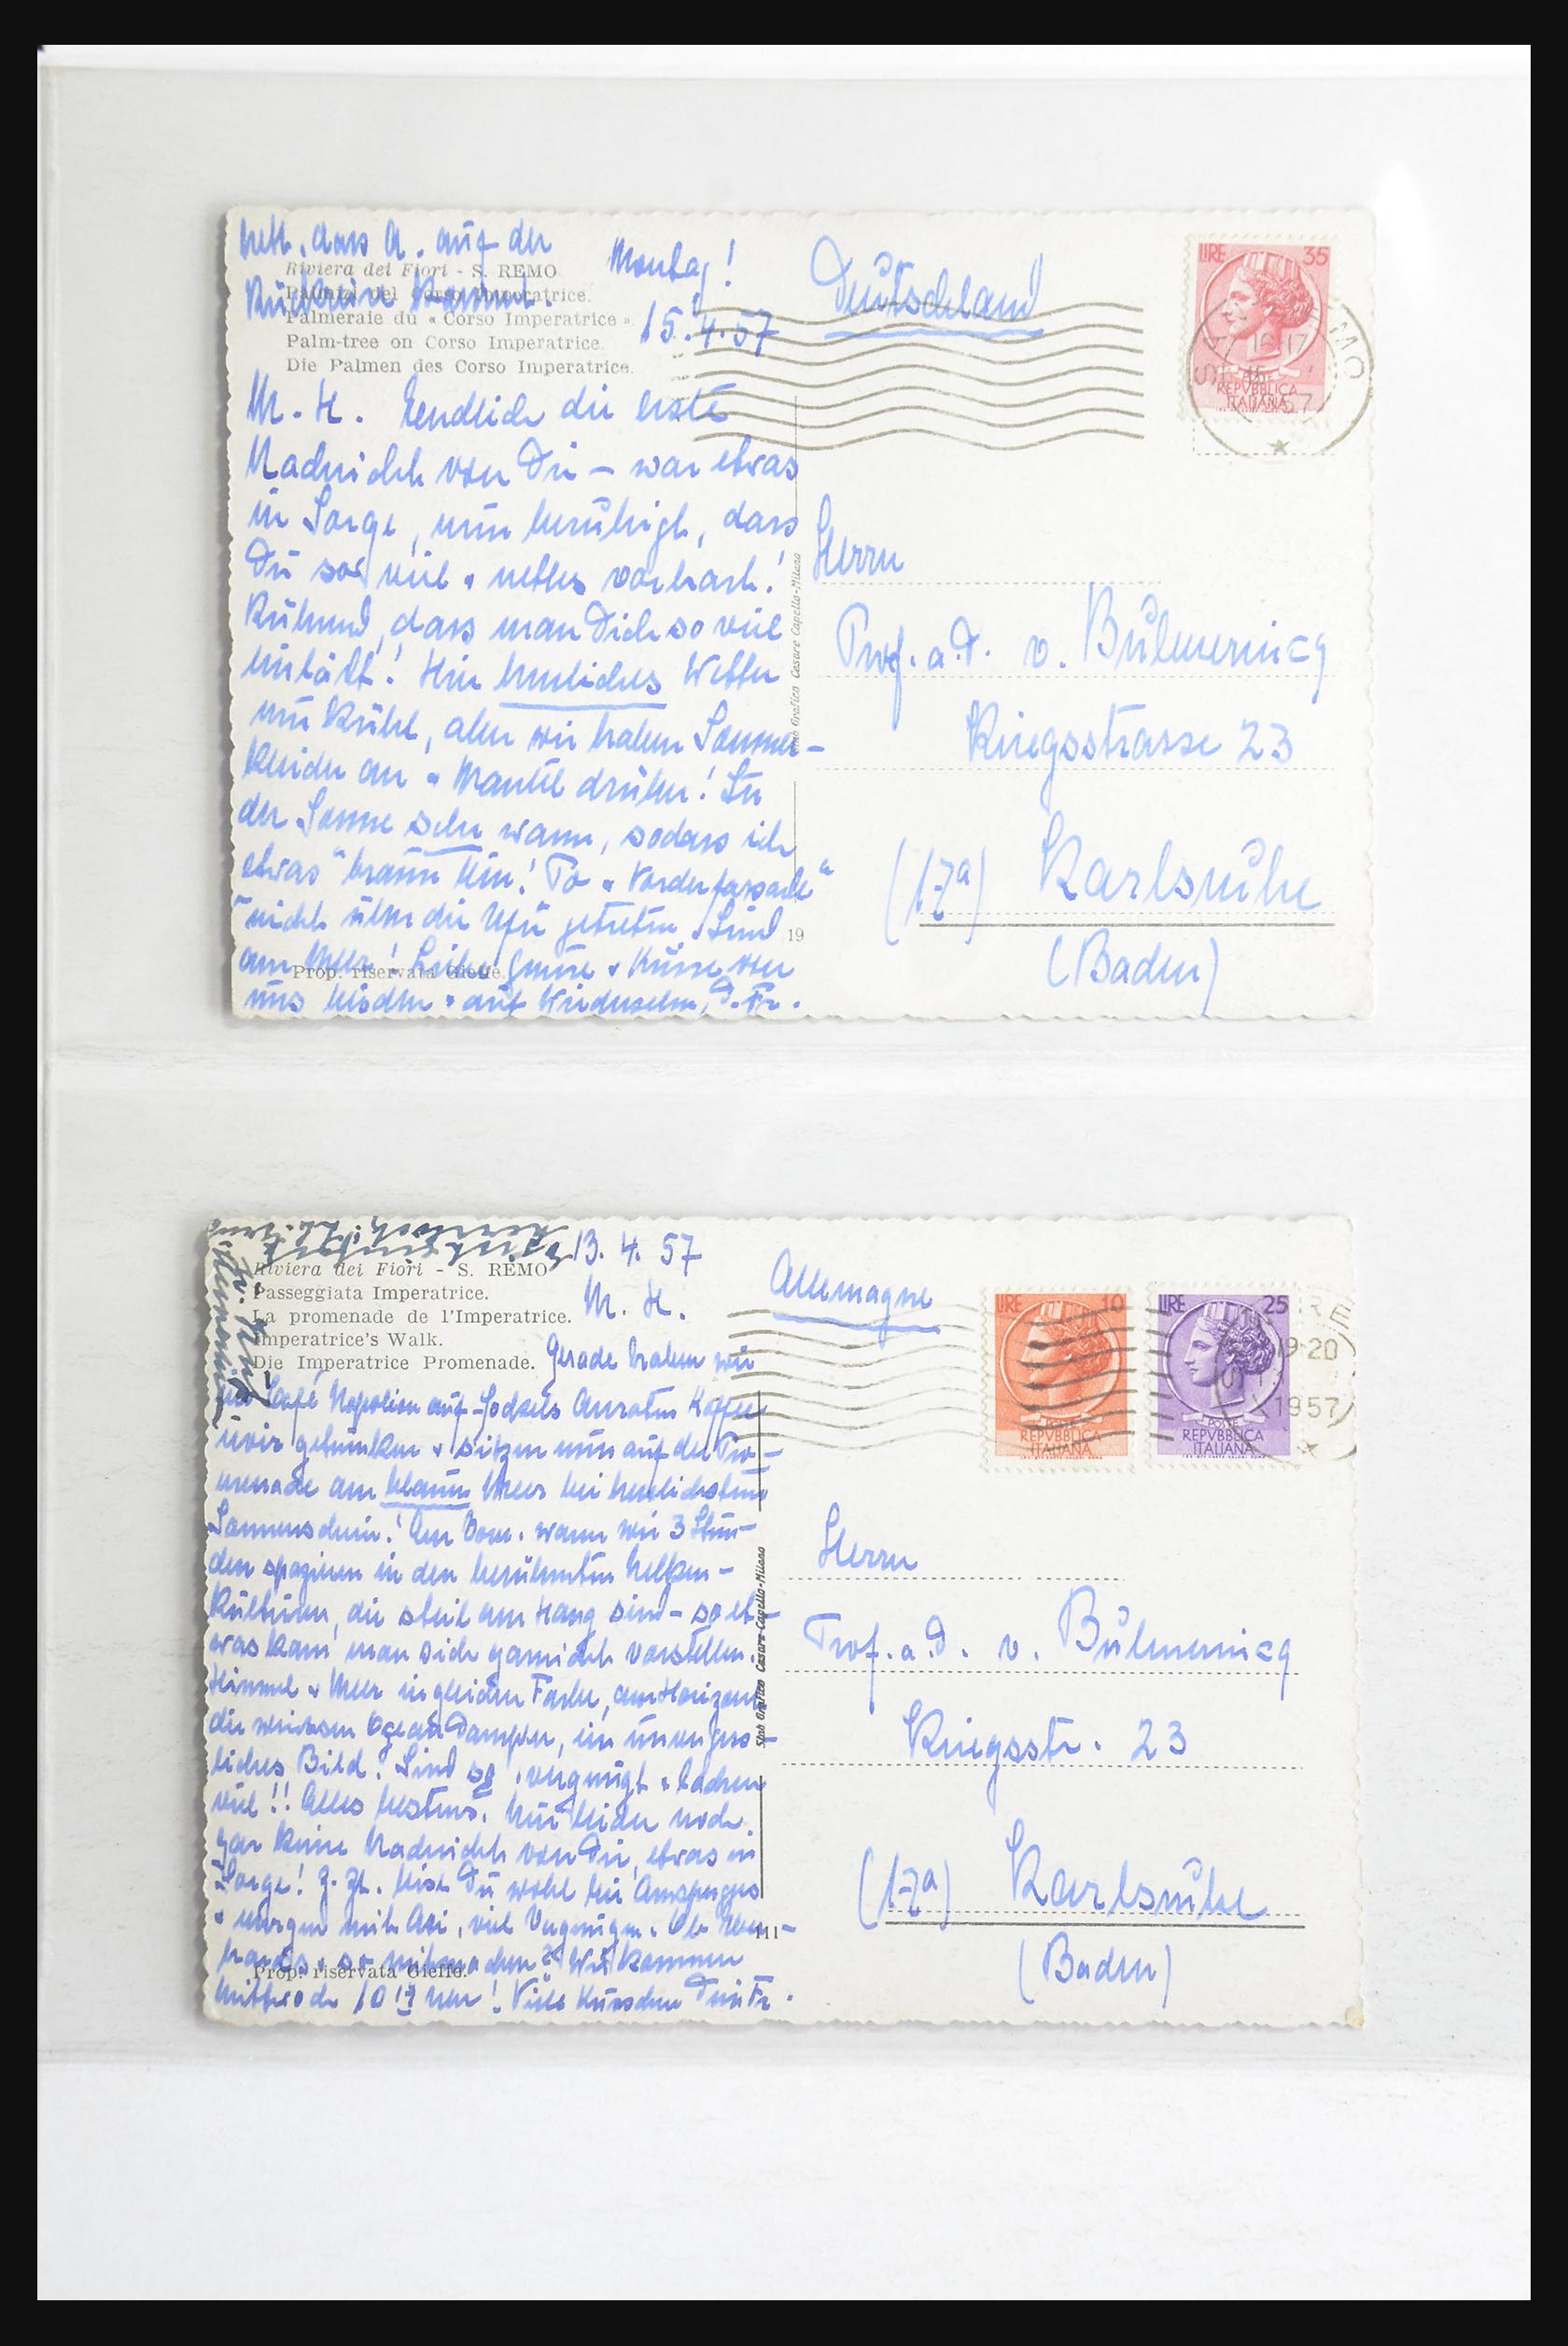 nett, dass A. auf der
Riviera dei Fiori - S. REMO
Montag!
Palmizi del Corso Imperatrice.
Palmeraie du « Corso Imperatrice »
15.4.57
Palm-tree on Corso Imperatrice.
Die Palmen des Corso Imperatrice.
M. H. Eendlich die erste
Nachricht von Dir – war etwas
in Sorge, nun beruhigt, dass
Du so viel + nettes vorhast!
Rührend, dass man Dich so viel
einlädt! Hier herrliches Wetter
nur kühl, aber wir haben Sommer-
kleider an + Mantel drüber! In
der Sonne sehr warm, sodass ich
etwas braun bin! Po + "Vorderfassade"
nicht über die getreten. Sind
am Meer! Liebe Grüsse + Küsse von
uns beiden + auf Wiedersehen, D. Fr.
Prop. riservata Gieffe.
19
Stab Grafico Cesare Capello-Milano
Deutschland
LIRE 35
REPVBBLICA
ITALIANA
Herrn
Prof. a.D. v. Bulmerincq
Kriegsstrasse 23
(17a) Karlsruhe
(Baden)
13. 4. 57
Riviera dei Fiori - S. REMO
Passeggiata Imperatrice.
M. H.
La promenade de l'Imperatrice.
Imperatrice's Walk.
Die Imperatrice Promenade.
Gerade haben wir
im Café Napoleon auf Anraten Kaffee
getrunken + sitzen nun auf der Pro-
menade am blauen Meer bei herrlichstem
Sonnenschein! Am Vorm. waren wir 3 Stun-
den spazieren in den berühmten Nelken-
kulturen, die steil am Hang sind – so et-
was kann man sich garnicht vorstellen.
Himmel + Meer in gleicher Farbe, am Horizont
die weissen Ozeandampfer, ein unverges-
liches Bild! Sind so vergnügt + lachen
viel!! Alles bestens. Nur leider noch
gar keine Nachricht von Dir, etwas in
Sorge! Z. Zt. bist Du wohl bei
+ morgen mit viel Vergnügen. Ob
+ so mitmachen? Wir kommen
Mittwoch 10 17 Uhr! Viele Küsschen Dein Fr.
Prop. riservata Gieffe.
111
Stab Grafico Cesare Capello-Milano
Allemagne
LIRE 10
REPVBBLICA
ITALIANA
LIRE 25
POSTE
REPVBBLICA
ITALIANA
19-20
1957
Herrn
Prof. a.D. v. Bulmerincq
Kriegsstr. 23
(17a) Karlsruhe
(Baden)